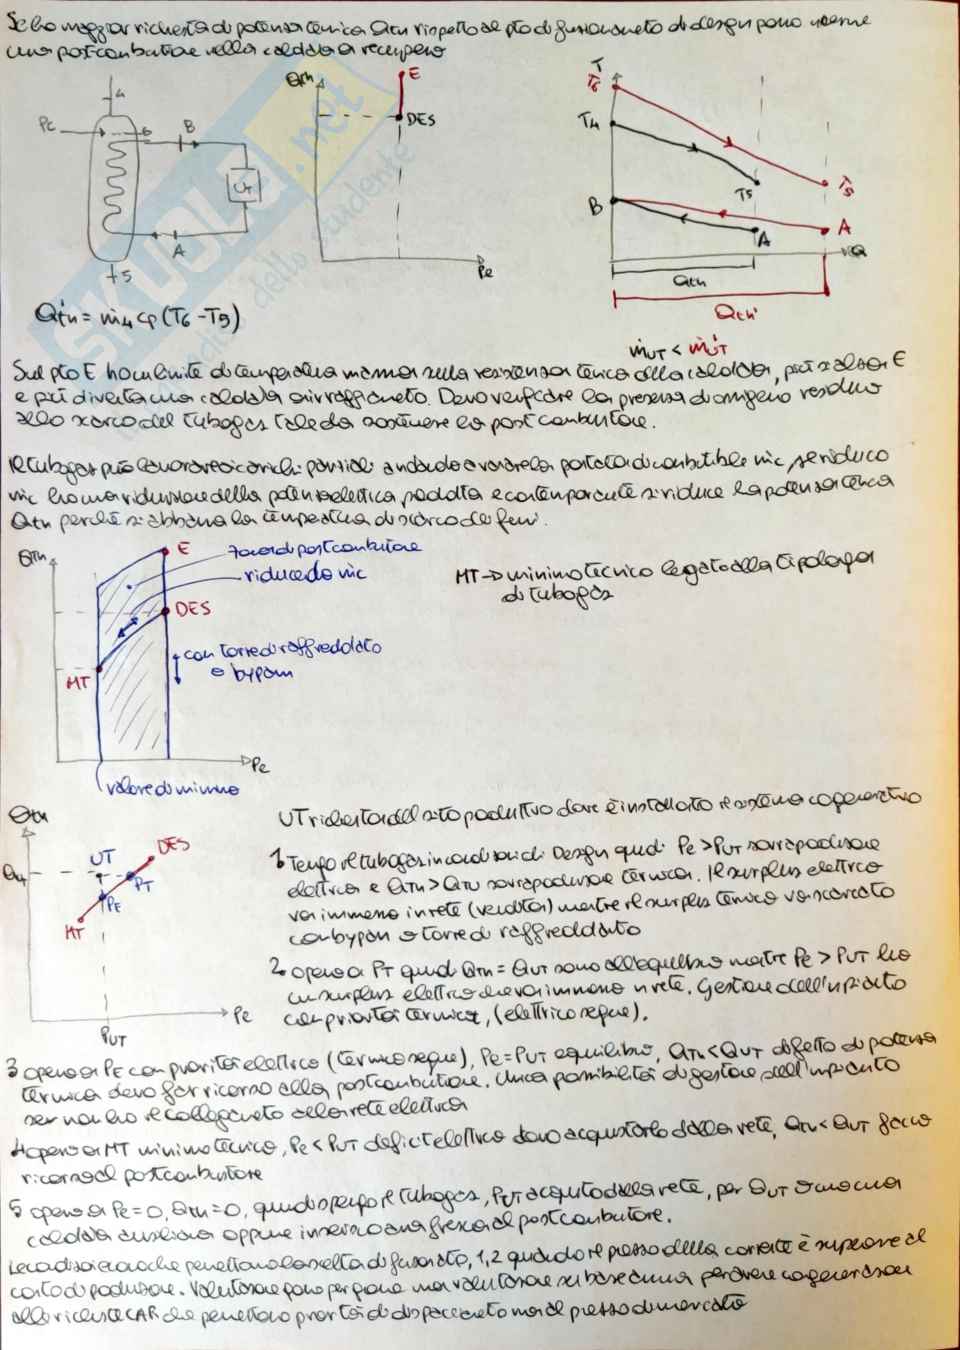 Se ho maggior richiesta di potenza termica Qth rispetto al pto di funzionamento di design posso inserire
una postcombustione nella caldaia a recupero
4
PC
6
B
UT
A
5
Qth
E
DES
Pe
T
T6
T4
T5
T5
B
A
A
Q
Qth
Qth'
Q'th = ṁ4 cp (T6 - T5)
ṁUT < ṁ'UT
Sul pto E ho un limite di temperatura massima sulla resistenza termica della caldaia, più salsa E
e più diventa una caldaia a irraggiamento. Devo verificare la presenza di ossigeno residuo
allo scarico del turbogas tale da sostenere la postcombustione.
Il turbogas può lavorare a carichi parziali andando a variare la portata di combustibile mc, se riduco
mc ho una riduzione della potenza elettrica prodotta e contemporaneamente si riduce la potenza termica
Qth perché si abbassa la temperatura di scarico dei fumi.
QTh
E
zona di postcombustione
riducendo mc
DES
con torre di raffreddato
o bypass
MT
Pe
valore di minimo
MT → minimo tecnico legato alla tipologia
di turbogas
Qth
UT
DES
PT
PE
MT
Pe
PUT
UT richiesta del sito produttivo dove è installato il sistema cogenerativo
1. Tengo il turbogas in condizioni di Design quindi Pe > PUT sovrapproduzione
elettrica e QTh > QTU sovrapproduzione termica. Il surplus elettrico
va immesso in rete (venduta) mentre il surplus termico va scaricato
con bypass o torre di raffreddato
2. opero a PT quindi QTh = QUT sono all'equilibrio mentre Pe > PUT ho
un surplus elettrico che va immesso in rete. Gestione dell'impianto
con priorità termica, (elettrico segue).
3 opero a PE con priorità elettrica (termico segue), Pe = PUT equilibrio, QTh < QUT difetto di potenza
termica devo far ricorso alla postcombustione. Unica possibilità di gestione dell'impianto
se non ho il collegamento alla rete elettrica
4 opero a MT minimo tecnico, Pe < PUT deficit elettrico devo acquistarlo dalla rete, Qth < QUT faccio
ricorso al postcombustore
5 opero a Pe = 0, Qth = 0, quindi spengo il turbogas, PUT acquisto dalla rete, per QUT o ho una
caldaia ausiliaria oppure inserisco aria fresca al postcombustore.
Le condizioni economiche permettono la scelta di funzionamento, 1, 2 quando il prezzo della corrente è superiore al
costo di produzione. Valutazione giorno per giorno ma valutazione su base annua per avere cogenerazione
alto rendimento CAR che permettono priorità di dispacciamento ma al prezzo di mercato
SKUOLA.net